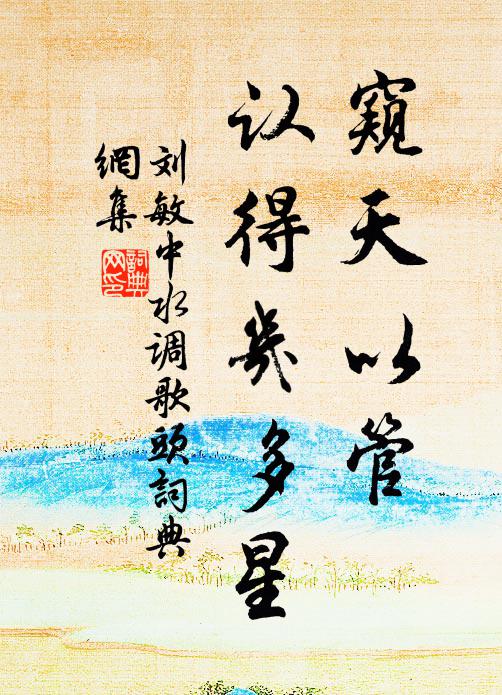 窺天以管
认得幾多星
刘敏中水调歌頭詞典
網集
詞典
网印